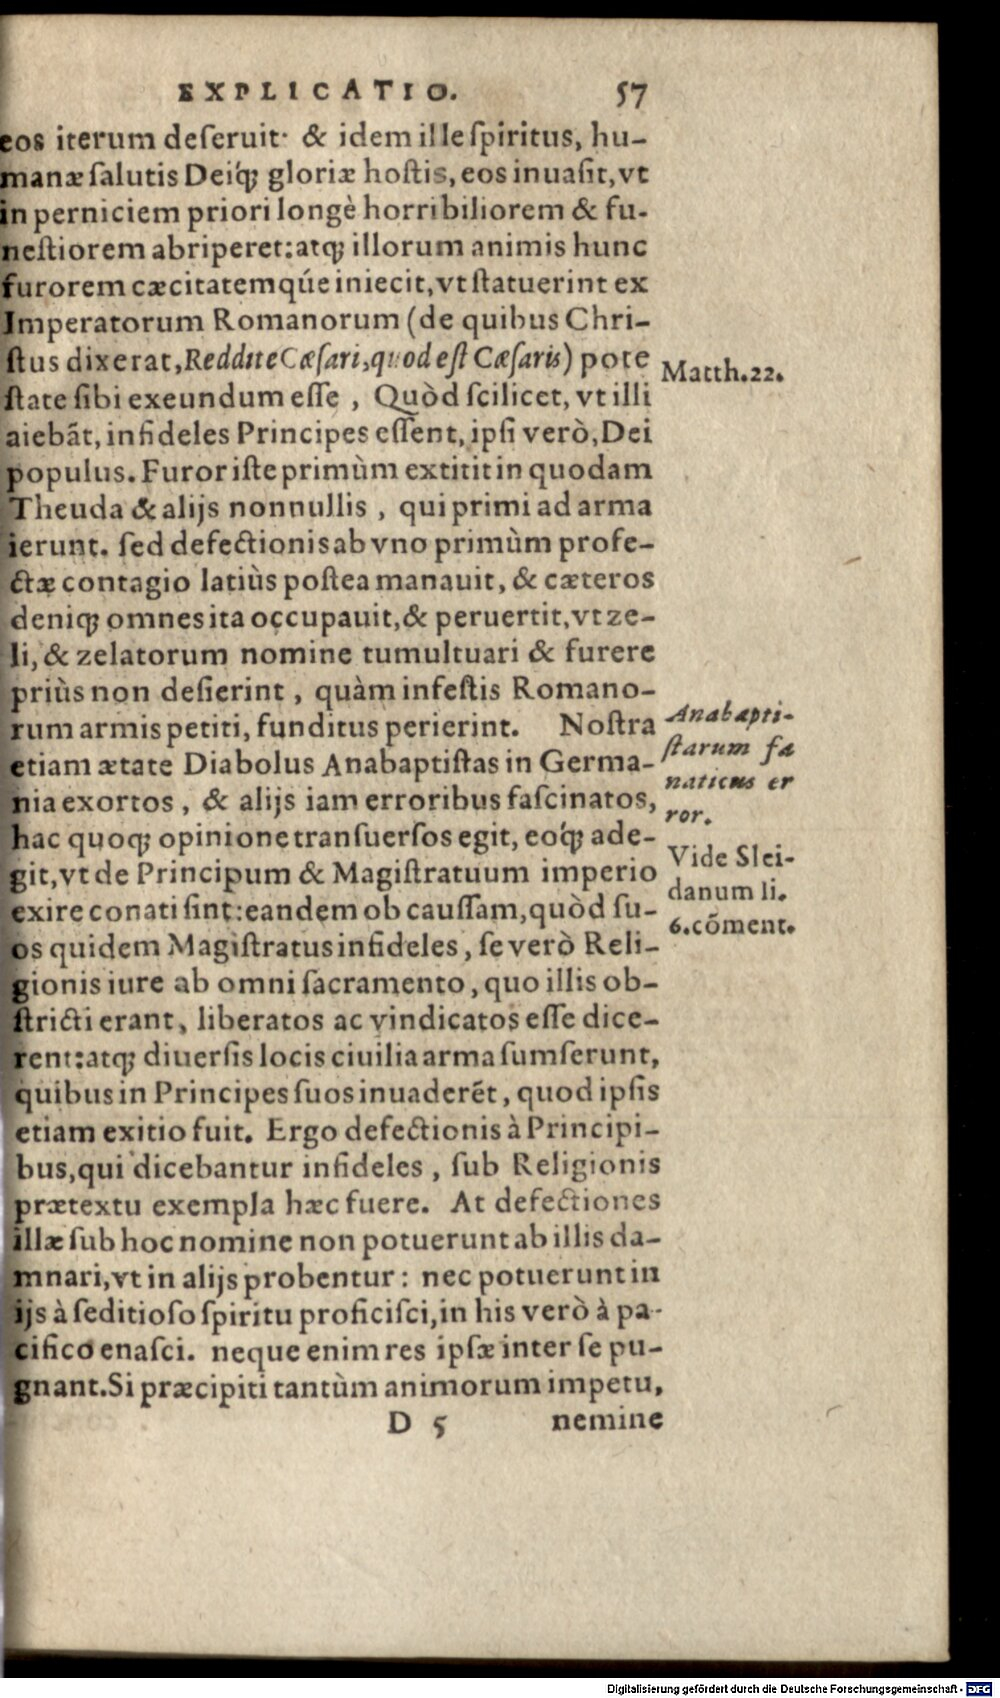 EXPLICATIO. 57
eos iterum deſeruit· & idem ille ſpiritus, hu-
manæ ſalutis Deiq́; gloriæ hoſtis, eos inuaſit, vt
in perniciem priori longè horribiliorem & fu-
neſtiorem abriperet: atq; illorum animis hunc
furorem cæcitatemqúe iniecit, vt ſtatuerint ex
Imperatorum Romanorum (de quibus Chri-
ſtus dixerat, Reddite Cæſari, quod eſt Cæſaris) pote
Matth. 22.
ſtate ſibi exeundum eſſe , Quòd ſcilicet, vt illi
aiebāt, infideles Principes eſſent, ipſi verò, Dei
populus. Furor iſte primùm extitit in quodam
Theuda & alijs nonnullis , qui primi ad arma
ierunt. ſed defectionis ab vno primùm profe-
ctæ contagio latiùs poſtea manauit, & cæteros
deniq; omnes ita occupauit, & peruertit, vt ze-
li, & zelatorum nomine tumultuari & furere
priùs non deſierint , quàm infeſtis Romano-
rum armis petiti, funditus perierint. Noſtra
etiam ætate Diabolus Anabaptiſtas in Germa-
nia exortos , & alijs iam erroribus faſcinatos,
hac quoq; opinione tranſuerſos egit, eoq́; ade-
git, vt de Principum & Magiſtratuum imperio
exire conati ſint: eandem ob cauſſam, quòd ſu-
os quidem Magiſtratus infideles , ſe verò Reli-
gionis iure ab omni ſacramento , quo illis ob-
ſtricti erant, liberatos ac vindicatos eſſe dice-
rent: atq; diuerſis locis ciuilia arma ſumſerunt,
quibus in Principes ſuos inuaderēt , quod ipſis
etiam exitio fuit. Ergo defectionis à Principi-
bus, qui dicebantur infideles , ſub Religionis
prætextu exempla hæc fuere. At defectiones
illæ ſub hoc nomine non potuerunt ab illis da-
mnari, vt in alijs probentur: nec potuerunt in
ijs à ſeditioſo ſpiritu proficiſci, in his verò à pa-
cifico enaſci. neque enim res ipſæ inter ſe pu-
gnant. Si præcipiti tantùm animorum impetu,
Anabapti-
ſtarum fa
naticus er
ror.
Vide Slei-
danum li.
6. cōment.
D 5 nemine
Digitalisierung gefördert durch die Deutsche Forschungsgemeinschaft - DFG